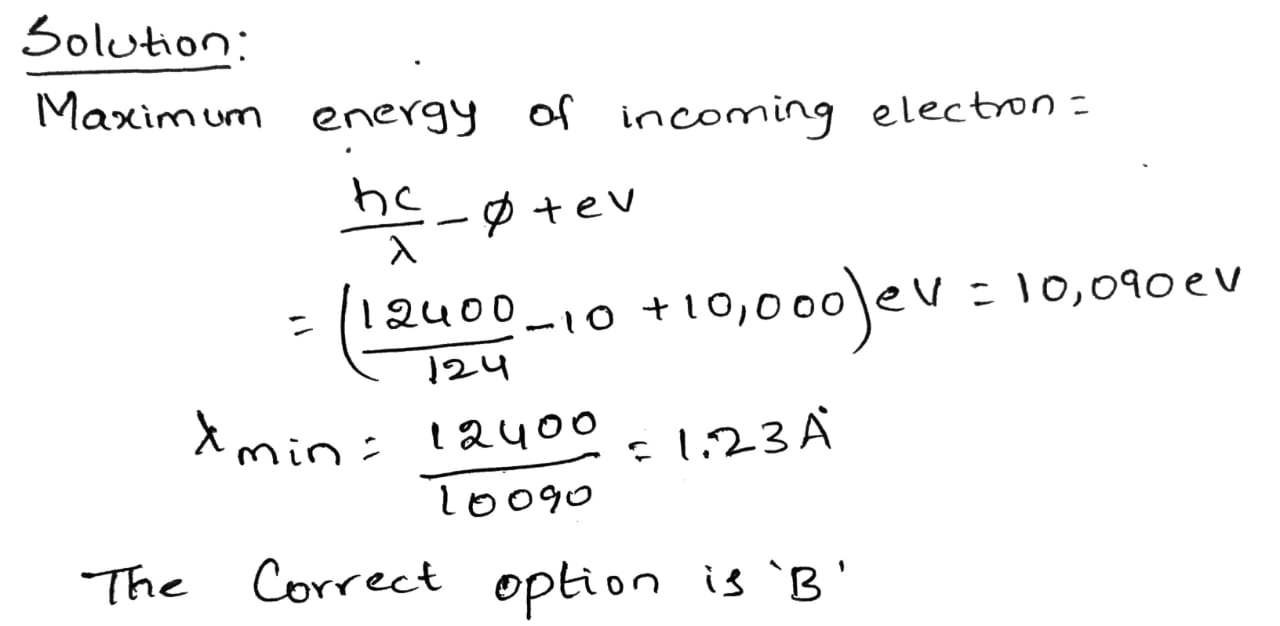 Solution:
Maximum energy of incoming electron =
hc/λ - φ + ev
= (12400/124 - 10 + 10,000) eV = 10,090 eV
λmin = 12400/10090 = 1.23 Å
The Correct option is 'B'